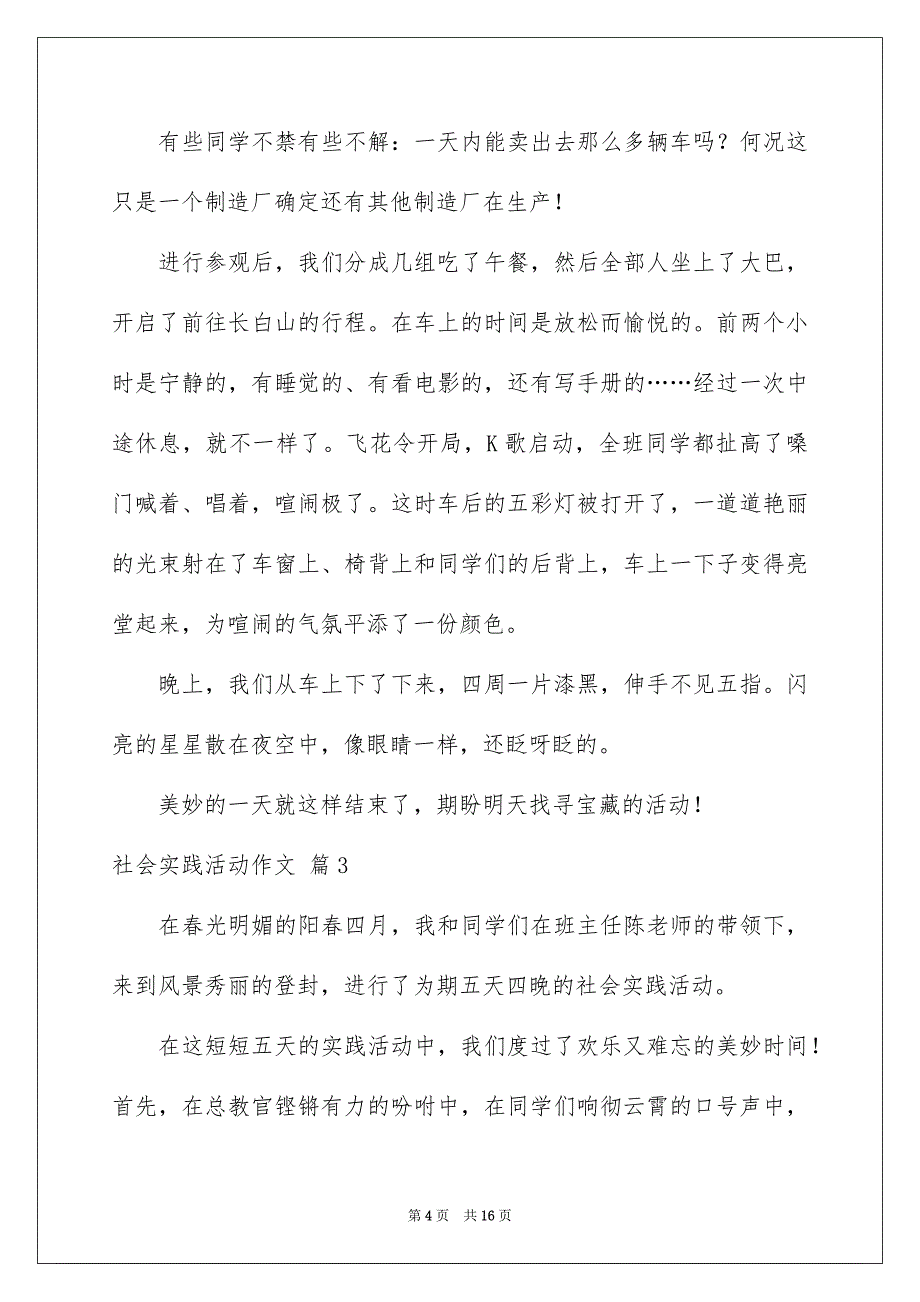 有些同学不禁有些不解：一天内能卖出去那么多辆车吗？何况这
只是一个制造厂确定还有其他制造厂在生产！
进行参观后，我们分成几组吃了午餐，然后全部人坐上了大巴，
开启了前往长白山的行程。在车上的时间是放松而愉悦的。前两个小
时是宁静的，有睡觉的、有看电影的，还有写手册的……经过一次中
途休息，就不一样了。飞花令开局，K 歌启动，全班同学都扯高了嗓
门喊着、唱着，喧闹极了。这时车后的五彩灯被打开了，一道道艳丽
的光束射在了车窗上、椅背上和同学们的后背上，车上一下子变得亮
堂起来，为喧闹的气氛平添了一份颜色。
晚上，我们从车上下了下来，四周一片漆黑，伸手不见五指。闪
亮的星星散在夜空中，像眼睛一样，还眨呀眨的。
美妙的一天就这样结束了，期盼明天找寻宝藏的活动！
社会实践活动作文 篇 3
在春光明媚的阳春四月，我和同学们在班主任陈老师的带领下，
来到风景秀丽的登封，进行了为期五天四晚的社会实践活动。
在这短短五天的实践活动中，我们度过了欢乐又难忘的美妙时间！
首先，在总教官铿锵有力的吩咐中，在同学们响彻云霄的口号声中，
第 4 页 共 16 页